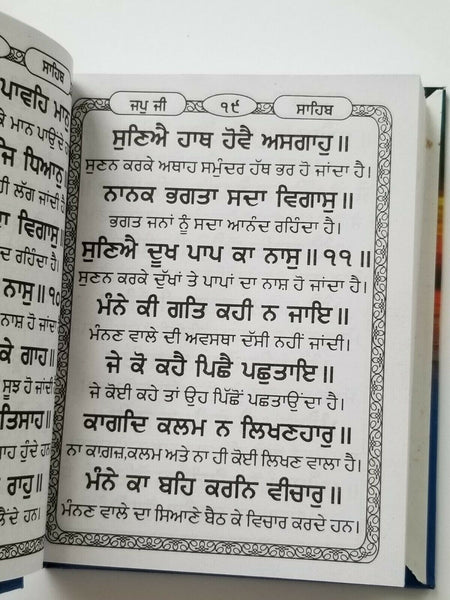 ਸਾਹਿਬ
ਪਾਵਹਿ ਮਾਨੁ
ਕੇ ਮਾਨ ਪਾਉਂਦੇ
ਧਿਆਨੁ
ਹੀ ਲੱਗ ਜਾਂਦੀ ਹੈ
ਸਦਾ ਵਿਗਾਸੁ
ਰਹਿੰਦਾ ਹੈ।
ਨਾਸੁ॥੧੦
ਹੋ ਜਾਂਦਾ
ਕੇ ਗਾਹ॥
ਸੂਝ ਹੋ ਜਾਂਦੀ
ਤਿਸਾਹ॥
ਹੁੰਦੇ ਹਨ
ਰਾਹੁ॥
ਲੈਂਦੇ ਹਨ।
ਜਪੁ ਜੀ ੧੯ ਸਾਹਿਬ
ਸੁਣਿਐ ਹਾਥ ਹੋਵੈ ਅਸਗਾਹੁ॥
ਸੁਣਨ ਕਰਕੇ ਅਥਾਹ ਸਮੁੰਦਰ ਹੱਥ ਭਰ ਹੋ ਜਾਂਦਾ ਹੈ।
ਨਾਨਕ ਭਗਤਾ ਸਦਾ ਵਿਗਾਸੁ॥
ਭਗਤ ਜਨਾਂ ਨੂੰ ਸਦਾ ਆਨੰਦ ਰਹਿੰਦਾ ਹੈ।
ਸੁਣਿਐ ਦੂਖ ਪਾਪ ਕਾ ਨਾਸੁ॥੧੧॥
ਸੁਣਨ ਕਰਕੇ ਦੁੱਖਾਂ ਤੇ ਪਾਪਾਂ ਦਾ ਨਾਸ਼ ਹੋ ਜਾਂਦਾ ਹੈ।
ਮੰਨੇ ਕੀ ਗਤਿ ਕਹੀ ਨ ਜਾਇ॥
ਮੰਨਣ ਵਾਲੇ ਦੀ ਅਵਸਥਾ ਦੱਸੀ ਨਹੀਂ ਜਾਂਦੀ।
ਜੇ ਕੋ ਕਹੈ ਪਿਛੈ ਪਛੁਤਾਇ॥
ਜੇ ਕੋਈ ਕਹੇ ਤਾਂ ਉਹ ਪਿੱਛੋਂ ਪਛਤਾਉਂਦਾ ਹੈ।
ਕਾਗਦਿ ਕਲਮ ਨ ਲਿਖਣਹਾਰੁ॥
ਨਾ ਕਾਗਜ਼,ਕਲਮ ਅਤੇ ਨਾ ਹੀ ਕੋਈ ਲਿਖਣ ਵਾਲਾ ਹੈ।
ਮੰਨੇ ਕਾ ਬਹਿ ਕਰਨਿ ਵੀਚਾਰੁ॥
ਮੰਨਣ ਵਾਲੇ ਦਾ ਸਿਆਣੇ ਬੈਠ ਕੇ ਵਿਚਾਰ ਕਰਦੇ ਹਨ।